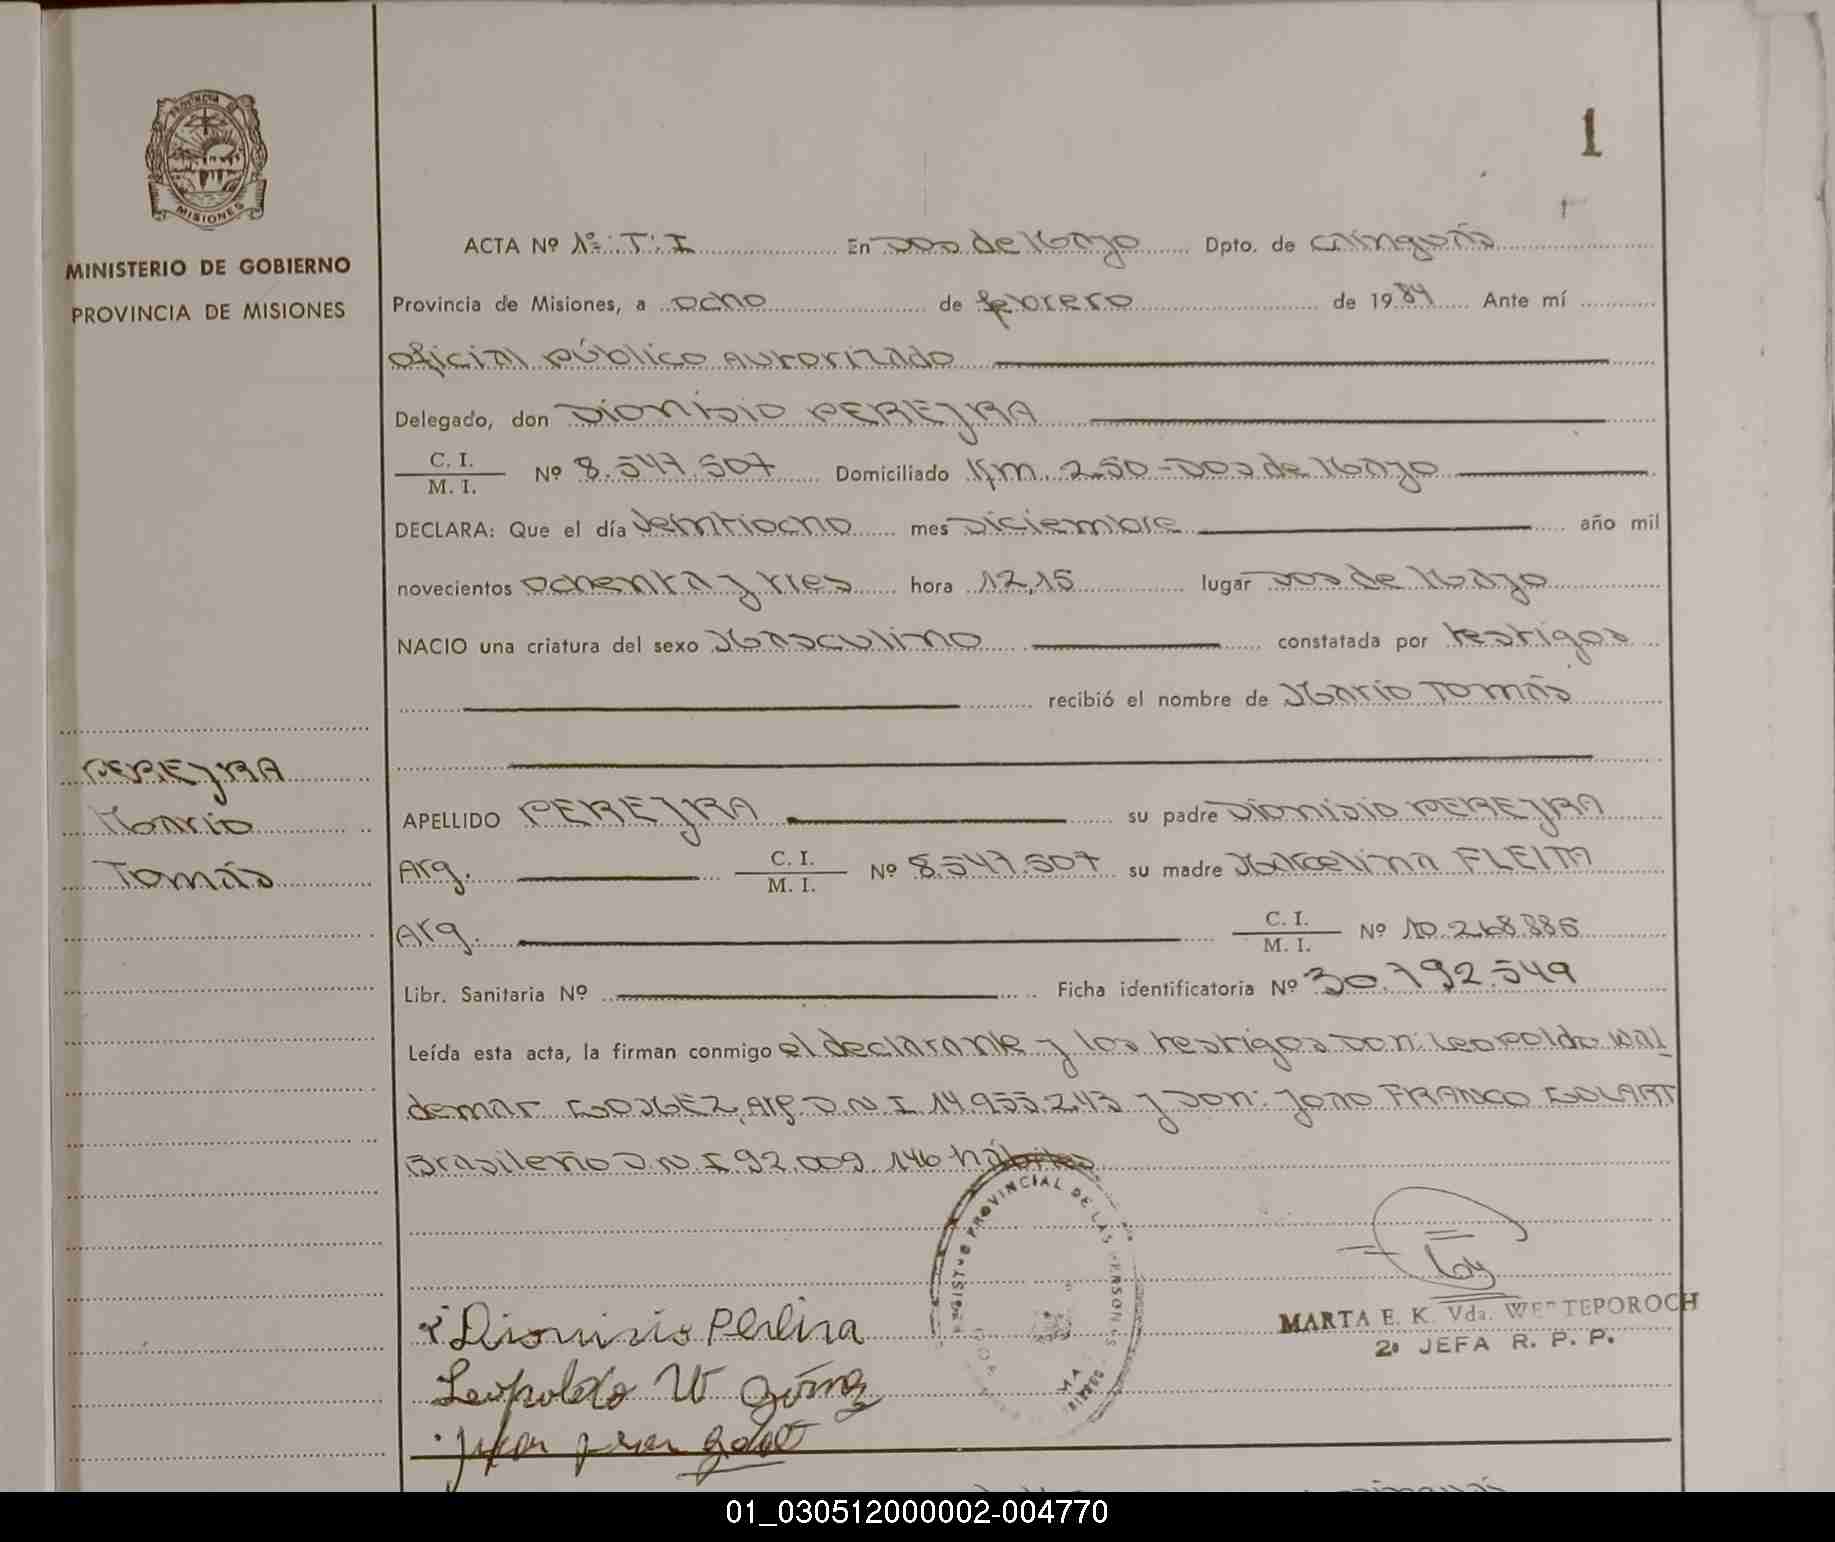 1
PROVINCIA DE
MISIONES
MINISTERIO DE GOBIERNO
PROVINCIA DE MISIONES
ACTA Nº 1º: T: I En Dos de Mayo Dpto. de Cainguás
Provincia de Misiones, a ocho de febrero de 1984 Ante mí
oficial público autorizado
Delegado, don Dionisio PEREJRA
C. I.
M. I. Nº 8.547.507 Domiciliado Km. 250 - Dos de Mayo
DECLARA: Que el día veintiocho mes Diciembre año mil
novecientos ochenta y tres hora 12,15 lugar Dos de Mayo
NACIO una criatura del sexo Masculino constatada por testigos
recibió el nombre de Mario Tomás
PEREJRA
Mario
Tomás
APELLIDO PEREJRA su padre Dionisio PEREJRA
Arg. C. I.
M. I. Nº 8.547.507 su madre Marcelina FLEITA
Arg. C. I.
M. I. Nº 10.268.886
Libr. Sanitaria Nº Ficha identificatoria Nº 30.792.549
Leída esta acta, la firman conmigo el declarante y los testigos Don: Leopoldo Wal
demar GOMEZ, Arg D.N.I 14.955.243 y Don: Joao FRANCO GULART
Brasileño D.N.I 92.009.146 hábiles
REGISTRO PROVINCIAL DE LAS PERSONAS
MARTA E. K. Vda. WESTEPOROCH
2º JEFA R. P. P.
Dionisio Pereira
Leopoldo W Gómez
01_030512000002-004770